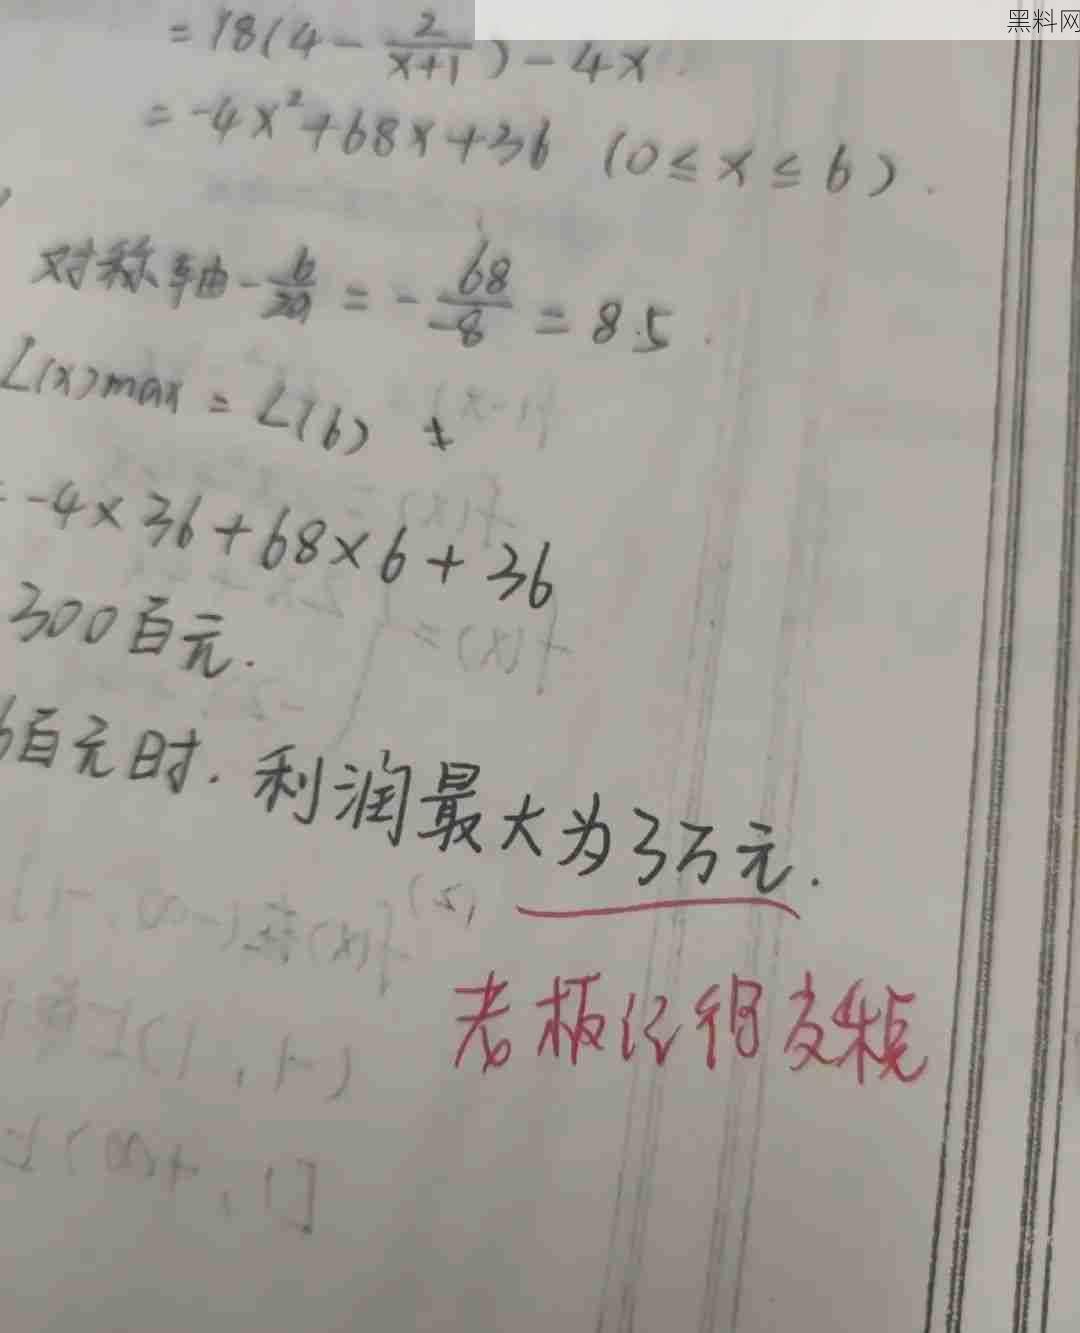 黑料网
= 18(4 - 2/(x+1)) - 4x
= -4x²+68x+36 (0≤x≤6).
对称轴 -b/2a = -68/-8 = 8.5.
L(x)max = L(6)
= -4×36+68×6+36
300百元.
6百元时.利润最大为3万元.
老板记得交税